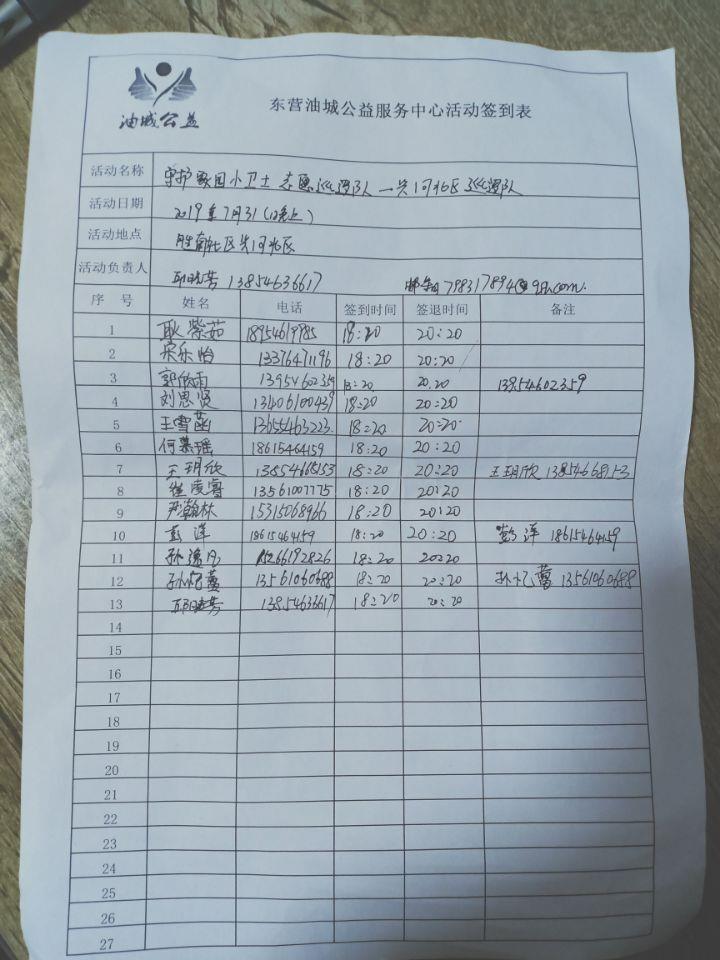 油城公益
东营油城公益服务中心活动签到表
活动名称 守护家园小卫士 志愿巡逻队 一 河北区巡逻队
活动日期 2019年7月31(晚上)
活动地点 胜南社区 河北区
活动负责人 邱晓芳 13854636617 邮箱
序 号 姓名 电话 签到时间 签退时间 备注
1 耿荣茹 18954619985 18:20 20:20
2 宋乐怡 13376471196 18:20 20:20
3 郭欣雨 13954602359 18:20 20:20 13854602359
4 刘思贤 13406100439 18:20 20:20
5 王雪菡 13655463223 18:20 20:20
6 何慕瑶 18615464159 18:20 20:20
7 王玥欣 18:20 20:20 王玥欣 13854668153
8 凌睿 13561007775 18:20 20:20
9 尹翰林 15315068966 18:20 20:20
10 彭洋 18615464159 18:20 20:20 彭洋 18615464159
11 孙逸凡 15266192826 18:20 20:20
12 孙忆蕾 13561060688 18:20 20:20 孙忆蕾 13561060688
13 邱晓芳 13854636617 18:20 20:20
14
15
16
17
18
19
20
21
22
23
24
25
26
27